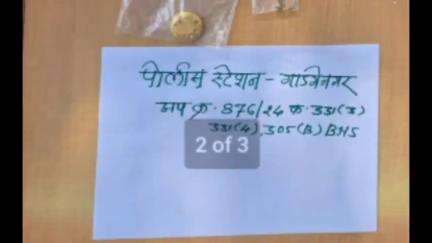 पोलीस स्टेशन - गाडगेनगर
अप क्र. 876/24 क. 331(3)
331(4), 305(A) BNS
2 of 3